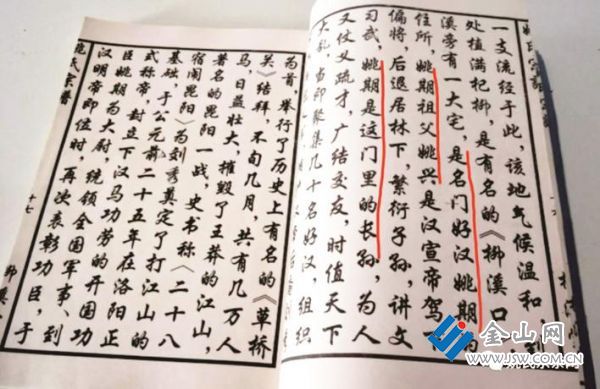 一支流经于此,该地气候温和
处植满杞柳,是有名的《柳溪口
溪旁有一大宅,是名门好汉姚期
住所,姚期祖父姚兴是汉宣帝驾
偏将,后退居林下,繁衍子孙,讲文
习武,姚期是这门里的长孙,为人
又仗义疏才,广结交友,时值天下
大乱,当即聚集几十名好汉,组织
为首,举行了历史上有名的《草桥
关》结拜,不旬几月,共有几万人
马,日益壮大,摧毁了王莽的江山,
著名的昆阳一战,史书称《二十八
宿闹昆阳》为刘秀奠定了打江山的
基础,于公元前二十五年在洛阳正
式称帝,封立下汉马功劳的开国功
臣姚期为大尉,统领全国军事、到
汉明帝即位时,再次表彰功臣,于
姚氏宗谱
十七
金山网
www.JSW.com.cn